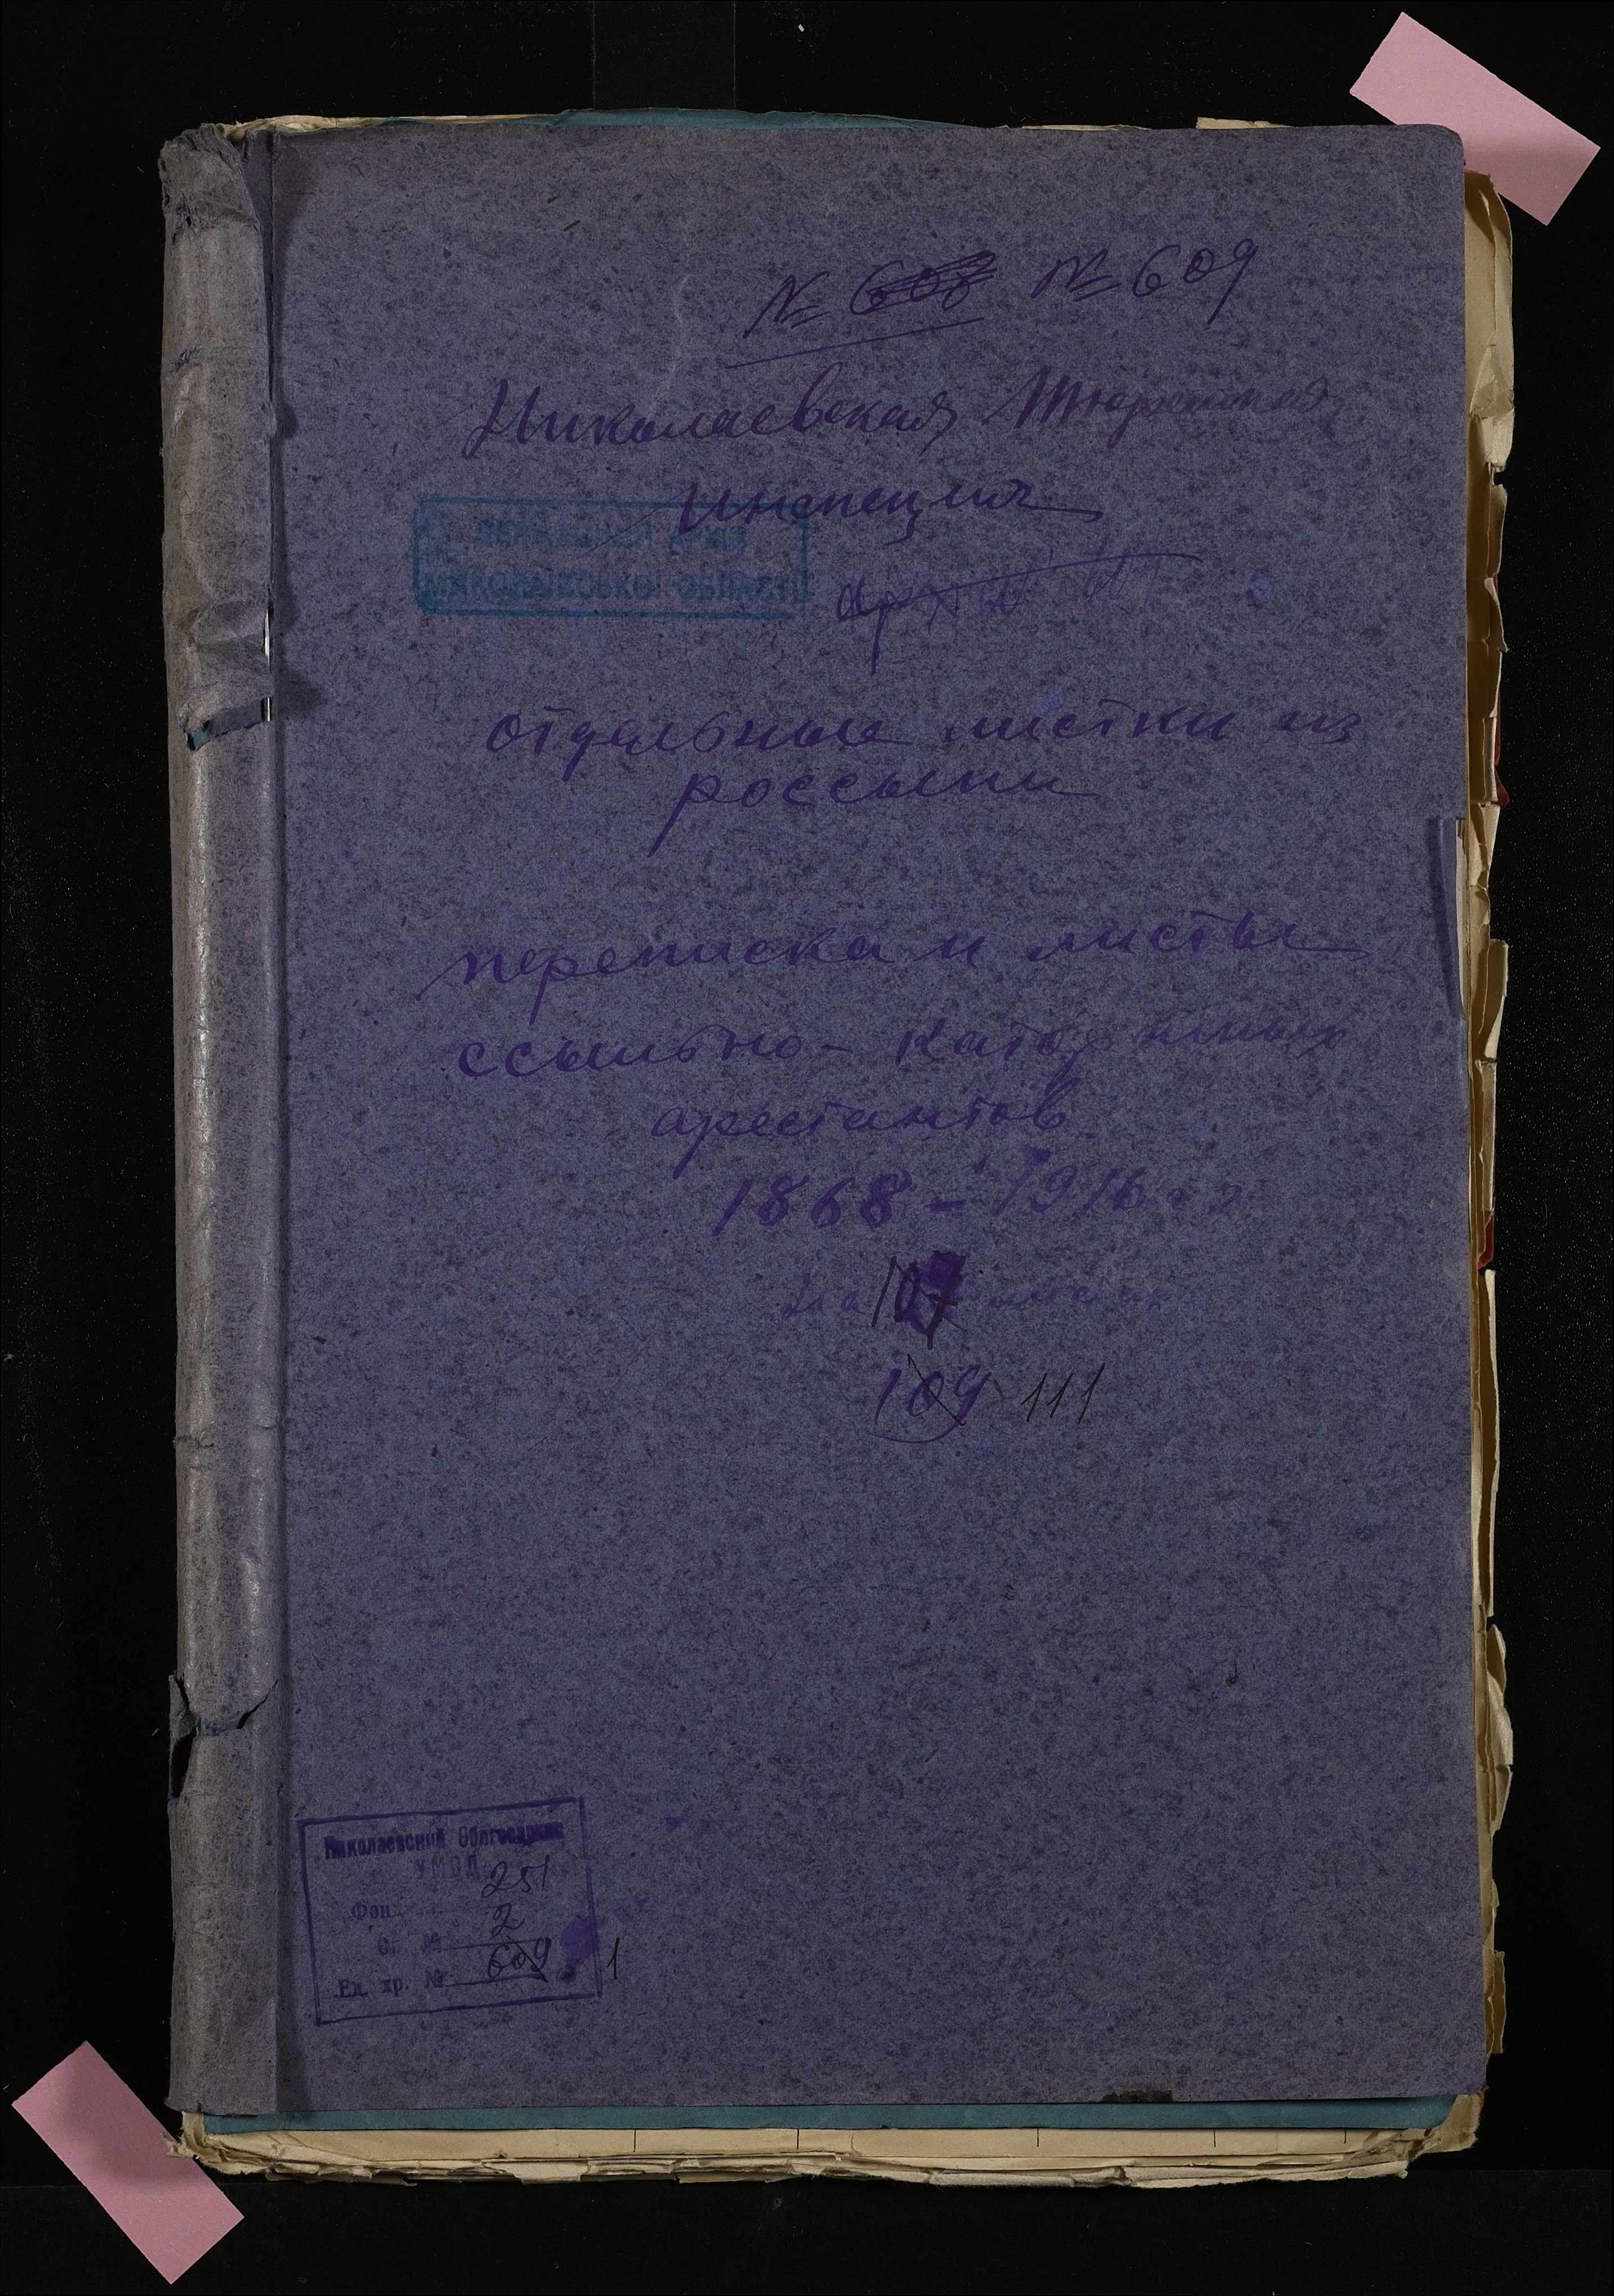 № 608 № 609
Николаевская Тюремная
инспекция
ДЕРЖАВНИЙ АРХІВ
МИКОЛАЇВСЬКОЇ ОБЛАСТІ
отдельные листки из
россыпи
переписка и листы
ссыльно-каторжных
арестантов
1868-1916 г г
на 107 листах
109 111
Николаевский Облгосархив
УМВД
Фон. 251
Оп. № 2
Ед. хр. № 609
1